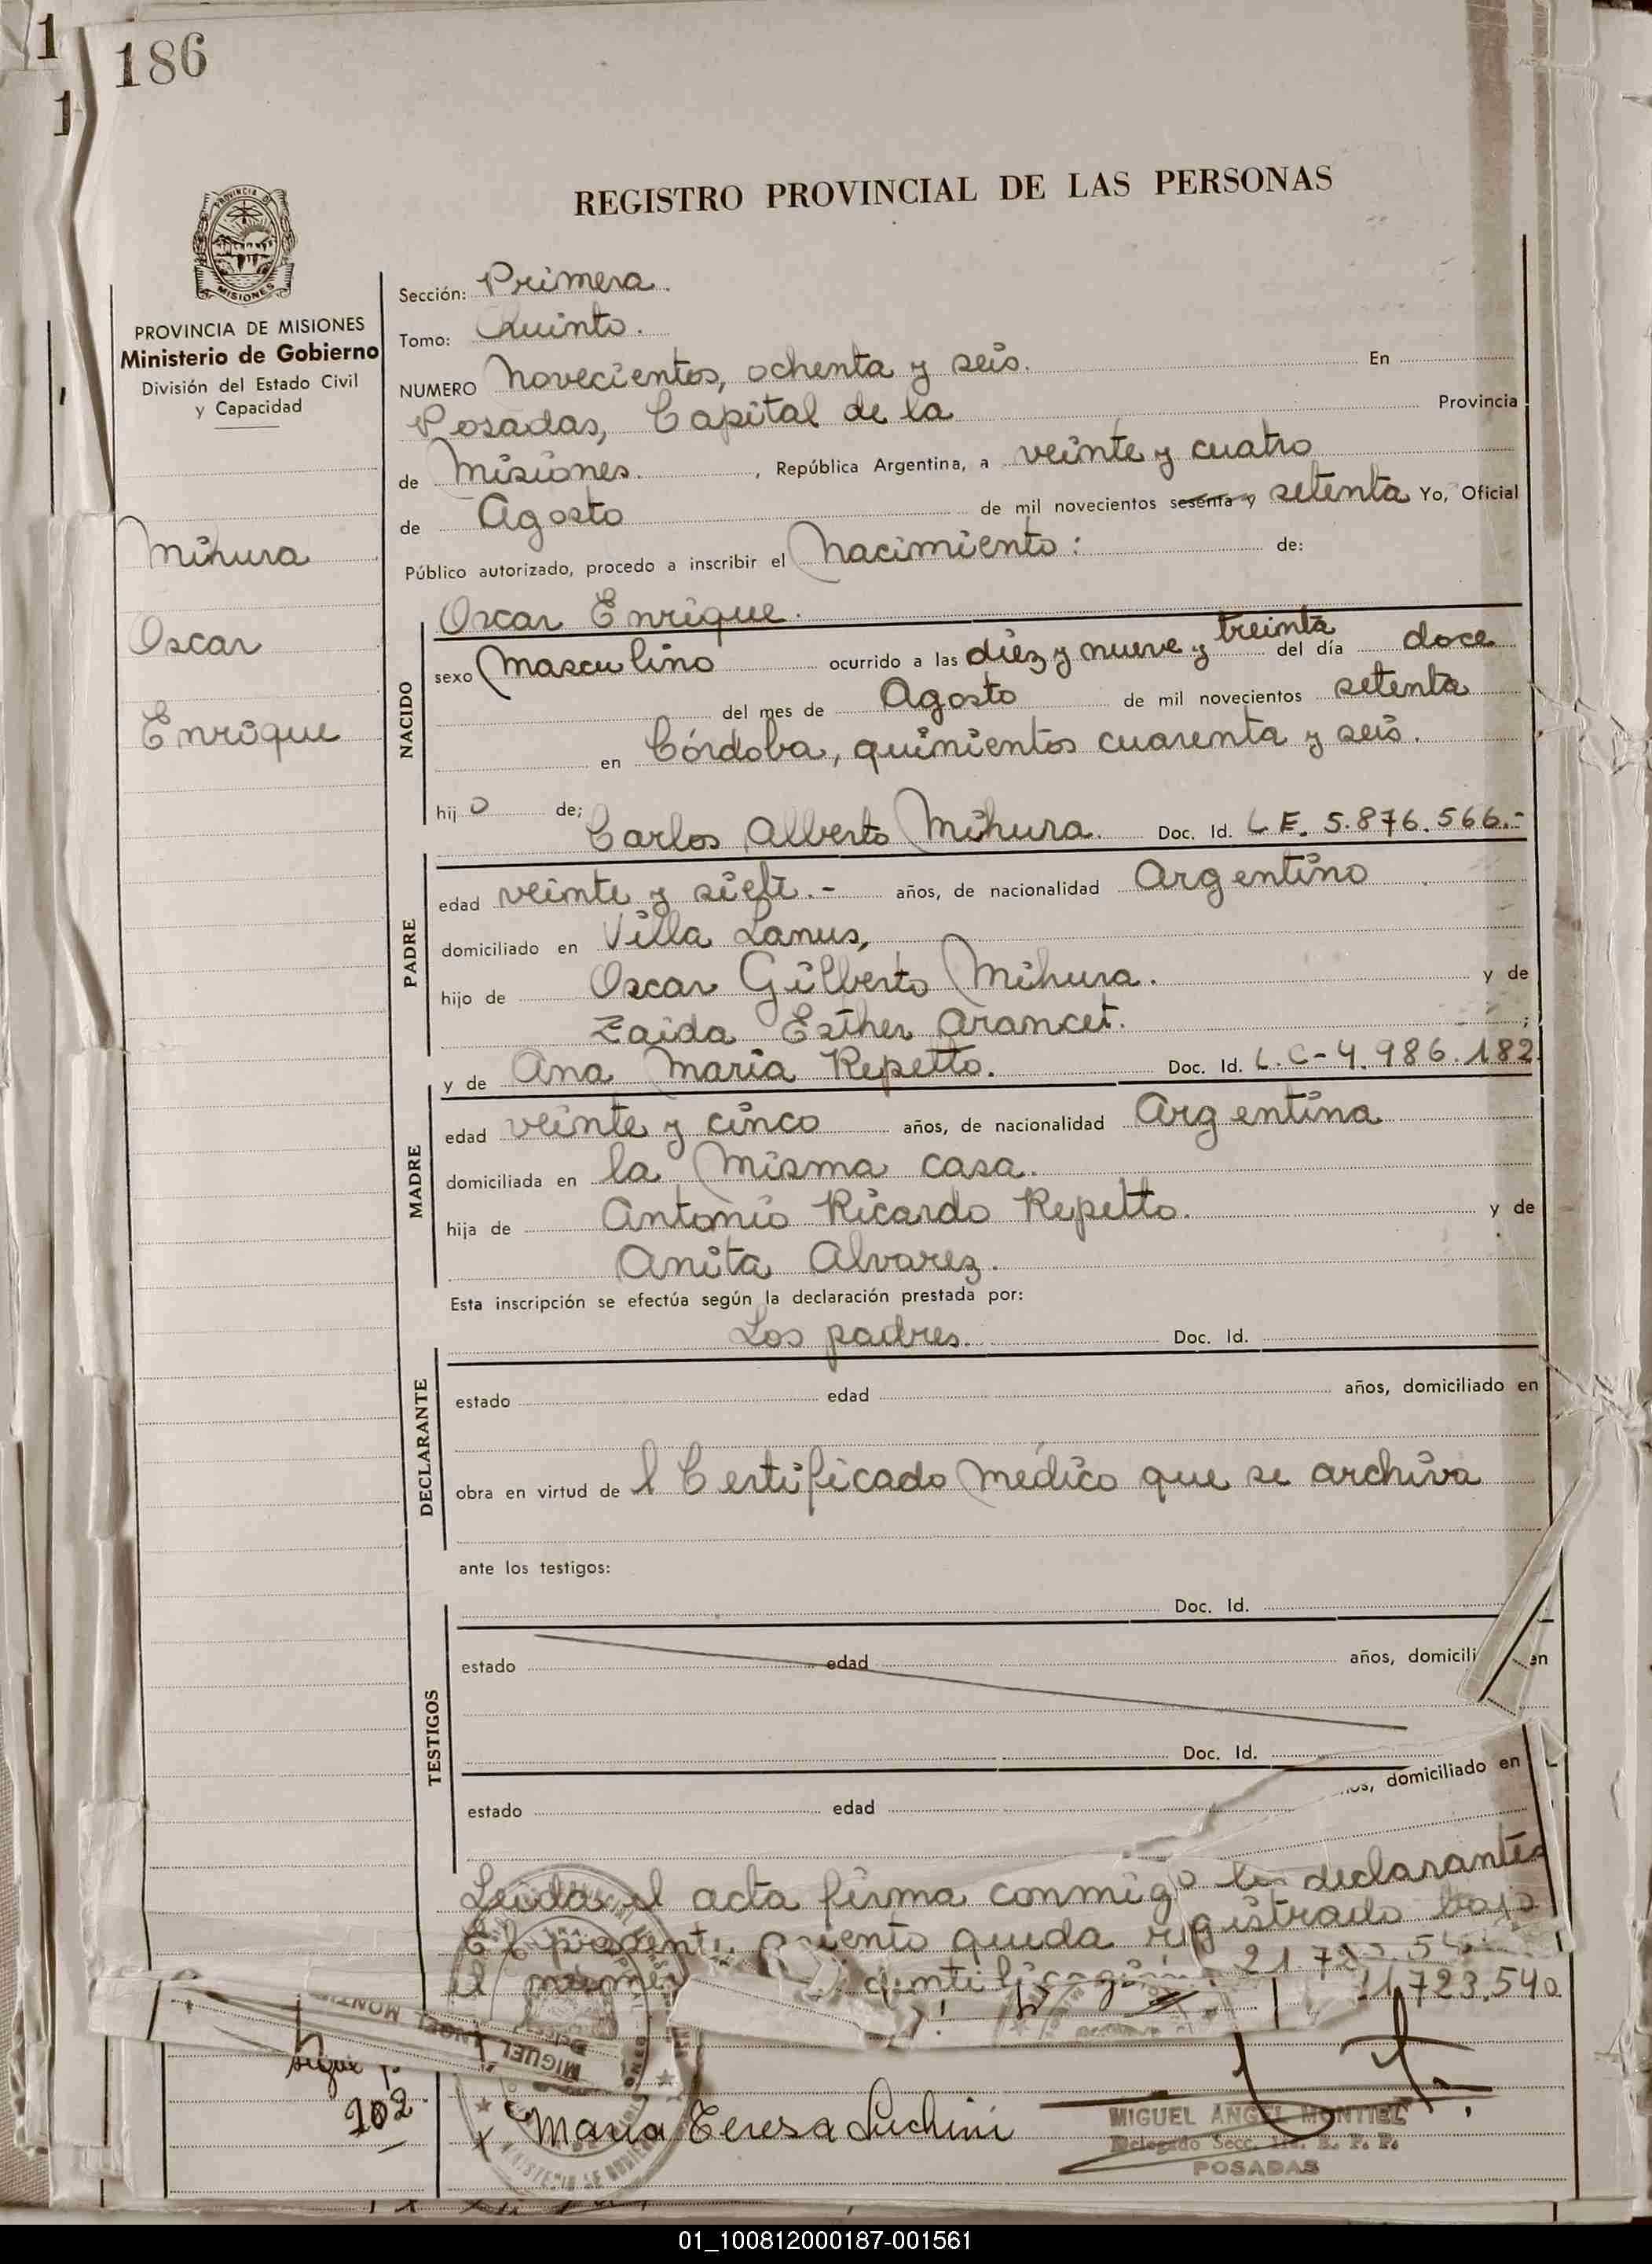 186
REGISTRO PROVINCIAL DE LAS PERSONAS
PROVINCIA DE MISIONES
Ministerio de Gobierno
División del Estado Civil
y Capacidad
Mihura
Oscar
Enrique
Sección: Primera.
Tomo: Quinto.
NUMERO Novecientos, ochenta y seis. En
Posadas, Capital de la Provincia
de Misiones. , República Argentina, a veinte y cuatro
de Agosto de mil novecientos sesenta y setenta Yo, Oficial
Público autorizado, procedo a inscribir el Nacimiento: de:
Oscar Enrique.
NACIDO
sexo Masculino ocurrido a las diez y nueve y treinta del día doce
del mes de Agosto de mil novecientos setenta
en Córdoba, quinientos cuarenta y seis.
hijo de; Carlos Alberto Mihura. Doc. Id. L E. 5.876.566.-
PADRE
edad veinte y siete.- años, de nacionalidad Argentino
domiciliado en Villa Lanus,
hijo de Oscar Gilberto Mihura. y de
Zaida Esther Arancet. ;
y de Ana Maria Repetto. Doc. Id. L.C-4.986.182
MADRE
edad veinte y cinco años, de nacionalidad Argentina
domiciliada en la Misma casa.
hija de Antonio Ricardo Repetto. y de
Anita Alvarez.
Esta inscripción se efectúa según la declaración prestada por:
Los padres. Doc. Id.
DECLARANTE
estado edad años, domiciliado en
obra en virtud de l Certificado Médico que se archiva
ante los testigos:
Doc. Id.
TESTIGOS
estado edad años, domicili en
Doc. Id.
estado edad domiciliado en
Leida el acta firma conmigo los declarantes
El presente asiento queda registrado bajo
el
21.723.540
MIGUEL ANGEL MONTIEL
sigue
202
Maria Teresa Luchini
MIGUEL ANGEL MONTIEL
Delegado Secc. 1ra. R. P. P.
POSADAS
01_100812000187-001561